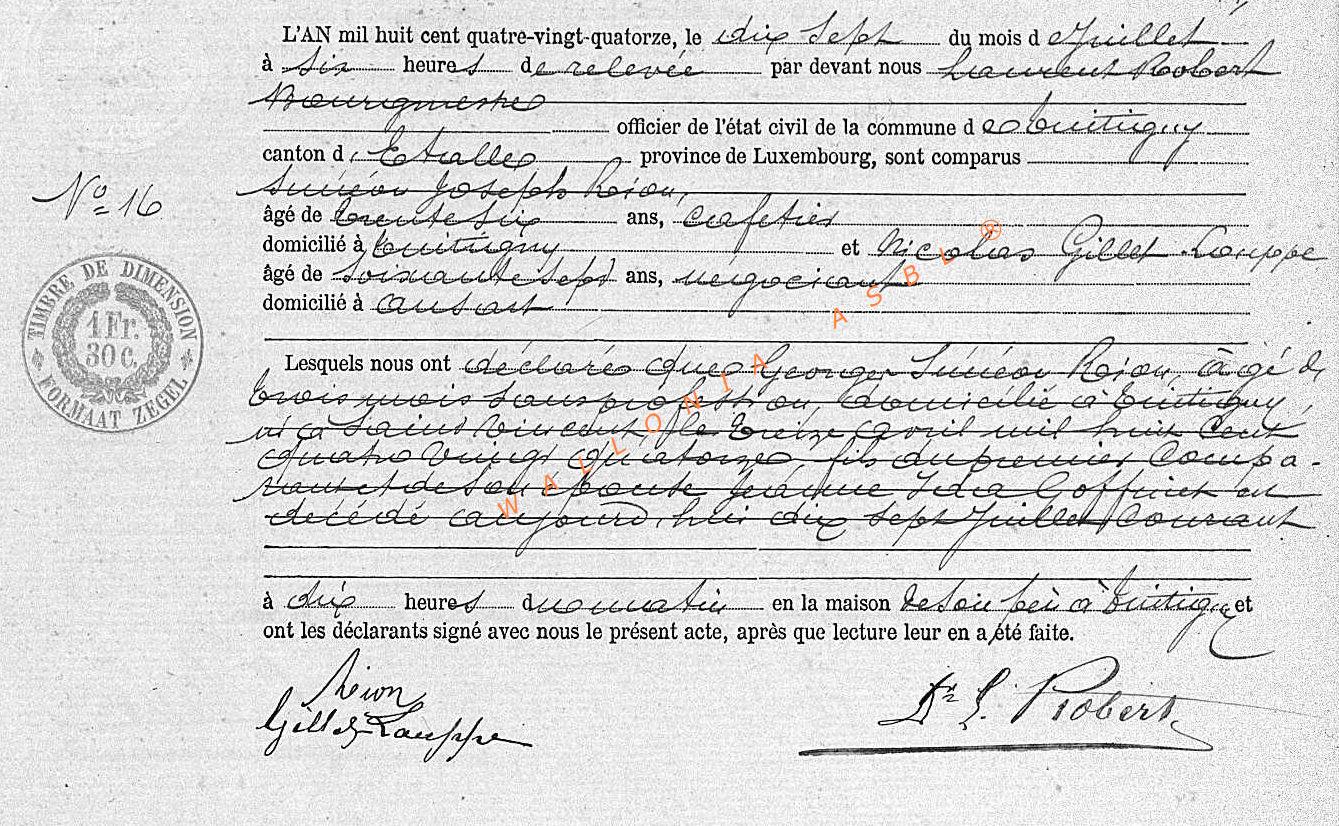 L'AN mil huit cent quatre-vingt-quatorze, le dix sept du mois de Juillet
à six heures de relevée par devant nous Laurent Robert
Bourgmestre
officier de l'état civil de la commune de Tintigny
canton d'Etalle province de Luxembourg, sont comparus
Siméon Joseph Rion,
No 16
âgé de trente six ans, cafetier
domicilié à Tintigny et Nicolas Gillet-Lauppe
âgé de soixante sept ans, négociant
domicilié à Ansart
TIMBRE DE DIMENSION
1 Fr.
30 C.
FORMAAT ZEGEL
Lesquels nous ont déclaré que Georges Siméon Rion, âgé de
trois mois sans profession, domicilié à Tintigny,
né à Saint Vincent, le treize avril mil huit cent
quatre vingt quatorze, fils du premier compa-
rant et de son épouse Jeanne Ida Goffinet est
décédé aujourd'hui dix sept Juillet courant
à dix heures du matin en la maison de son père à Tintigny et
ont les déclarants signé avec nous le présent acte, après que lecture leur en a été faite.
Rion
Gillet-Lauppe
Dr L. Robert
WALLONIA ASBL ®